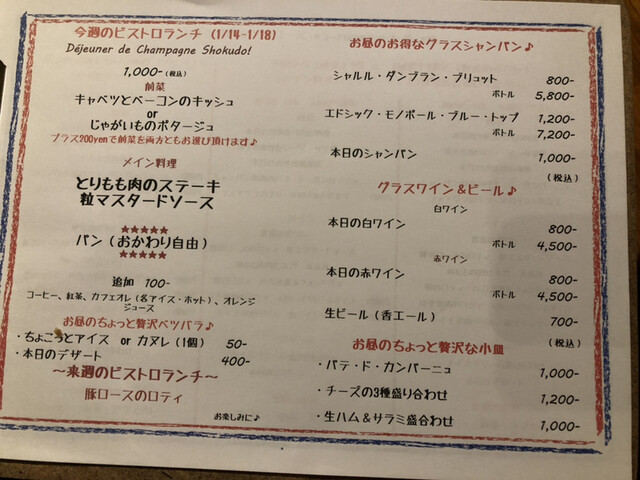 今週のビストロランチ (1/14-1/18)
Déjeuner de Champagne Shokudo!
1,000-(税込)
前菜
キャベツとベーコンのキッシュ
or
じゃがいものポタージュ
プラス200yenで前菜を両方ともお選び頂けます♪
メイン料理
とりもも肉のステーキ
粒マスタードソース
★★★★★
パン(おかわり自由)
★★★★★
追加 100-
コーヒー、紅茶、カフェオレ(各アイス・ホット)、オレンジ
ジュース
お昼のちょっと贅沢ベツバラ♪
・ちょこっとアイス or カヌレ(1個) 50-
・本日のデザート 400-
〜来週のビストロランチ〜
豚ロースのロティ
お楽しみに♪
お昼のお得なグラスシャンパン♪
シャルル・ダンブラン・ブリュット 800-
ボトル 5,800-
エドシック・モノポール・ブルー・トップ 1,200-
ボトル 7,200-
本日のシャンパン 1,000-
(税込)
グラスワイン&ビール♪
白ワイン
本日の白ワイン 800-
ボトル 4,500-
赤ワイン
本日の赤ワイン 800-
ボトル 4,500-
生ビール(香エール) 700-
お昼のちょっと贅沢な小皿 (税込)
・パテ・ド・カンパーニュ 1,000-
・チーズの3種盛り合わせ 1,200-
・生ハム&サラミ盛合わせ 1,000-